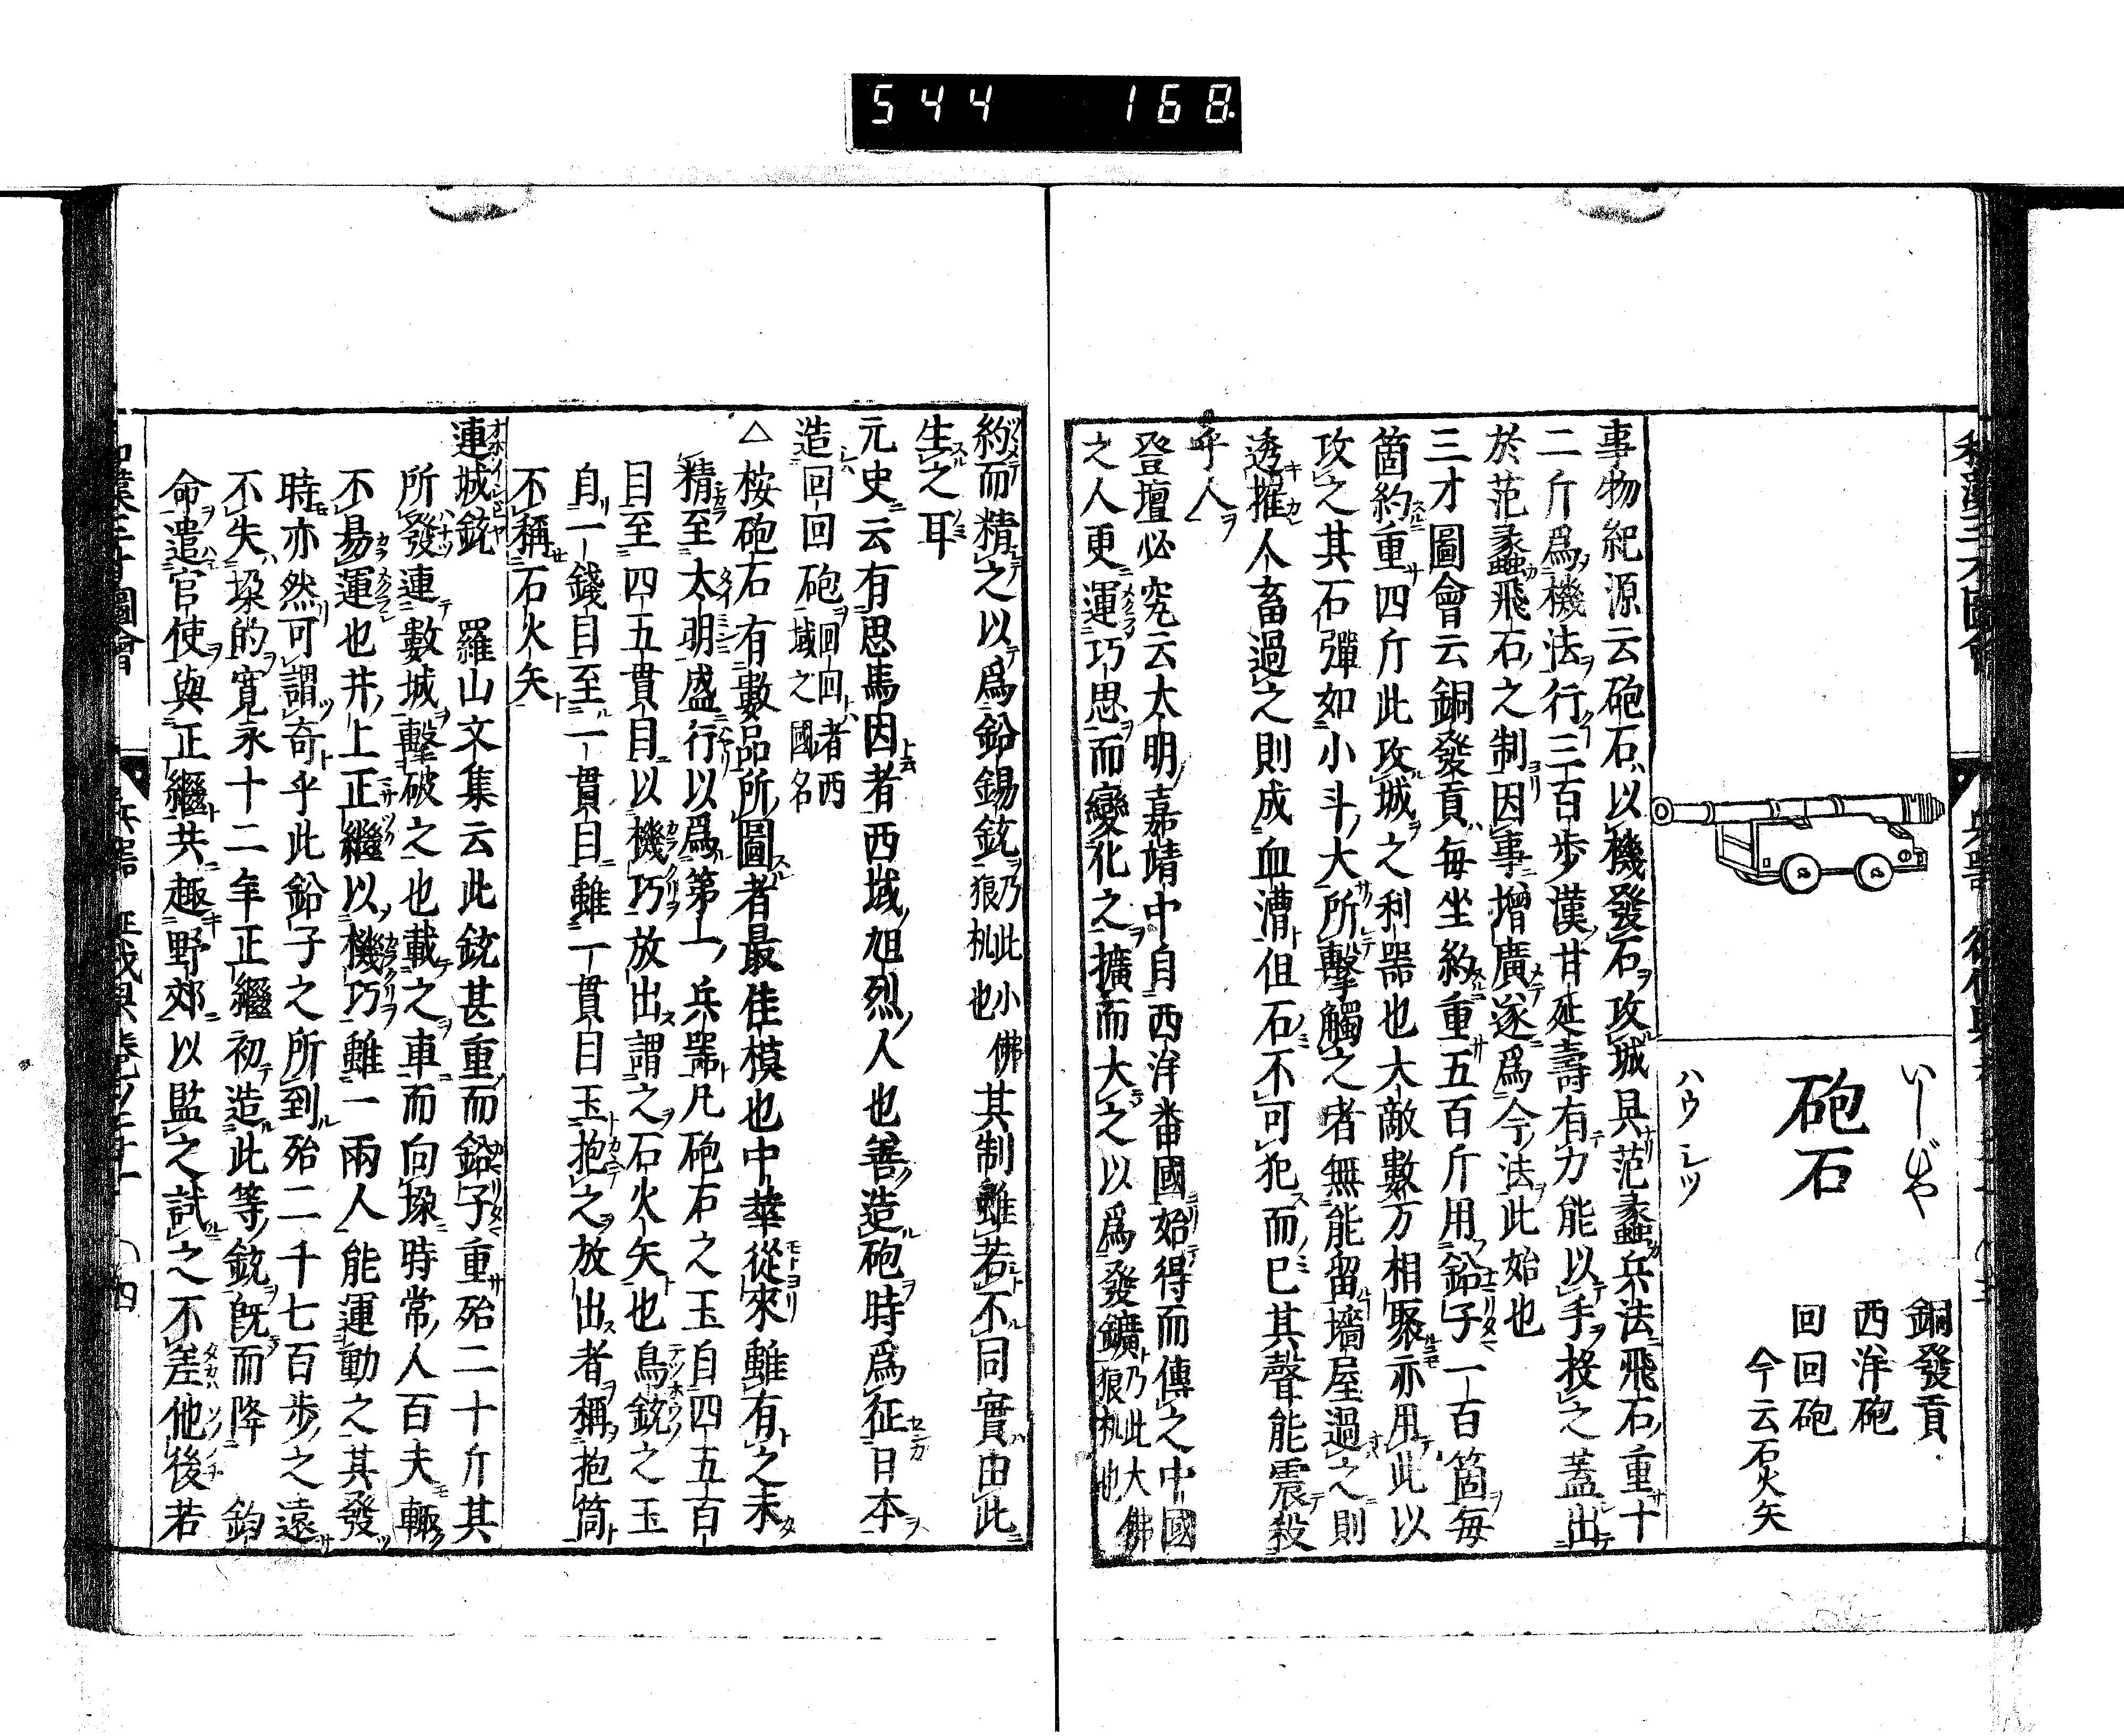 544 168
和漢三才圖會
兵器
いしびや
砲石
ハウ シツ
銅發貢
西洋砲
回回砲
今云石火矢
事物紀源云砲石以機發石攻城具范蠡兵法飛石重十
二斤爲機法行三百步漢甘延壽有力能以手投之蓋出
於范蠡飛石之制因事增廣遂爲今法此始也
三才圖會云銅發貢每坐約重五百斤用鉛子一百箇每
箇約重四斤此攻城之利器也大敵數万相聚亦用此以
攻之其石彈如小斗大所擊觸之者無能留墻屋過之則
透摧人畜過之則成血漕但石不可犯而已其聲能震殺
乎人
登壇必究云太明嘉靖中自西洋番國始得而傳之中國
之人更運巧思而變化之擴而大之以爲發鑛乃此大佛狼机也
約而精之以爲鉛錫銃乃此小佛狼机也其制雖若不同實由此
生之耳
元史云有思馬因者西域旭烈人也善造砲時爲征日本
造回回砲回回者西域之國名
△桉砲石有數品所圖者最佳模也中華從來雖有之未
精至太明盛行以爲第一兵器凡砲石之玉自四五百
目至四五貫目以機巧放出謂之石火矢也鳥銃之玉
自一錢目至一貫目雖一貫目玉抱之放出者稱抱筒
不稱石火矢
連城銃 羅山文集云此銃甚重而鉛子重殆二十斤其
所發連數城擊破之也載之車而向垜時常人百夫輙
不易運也井上正繼以機巧雖一兩人能運動之其發
時亦然可謂奇乎此鉛子之所到殆二千七百步之遠
不失垜的寬永十二年正繼初造此等銃旣而降 鈞
命遣官使與正繼共趣野郊以監之試之不差他後若